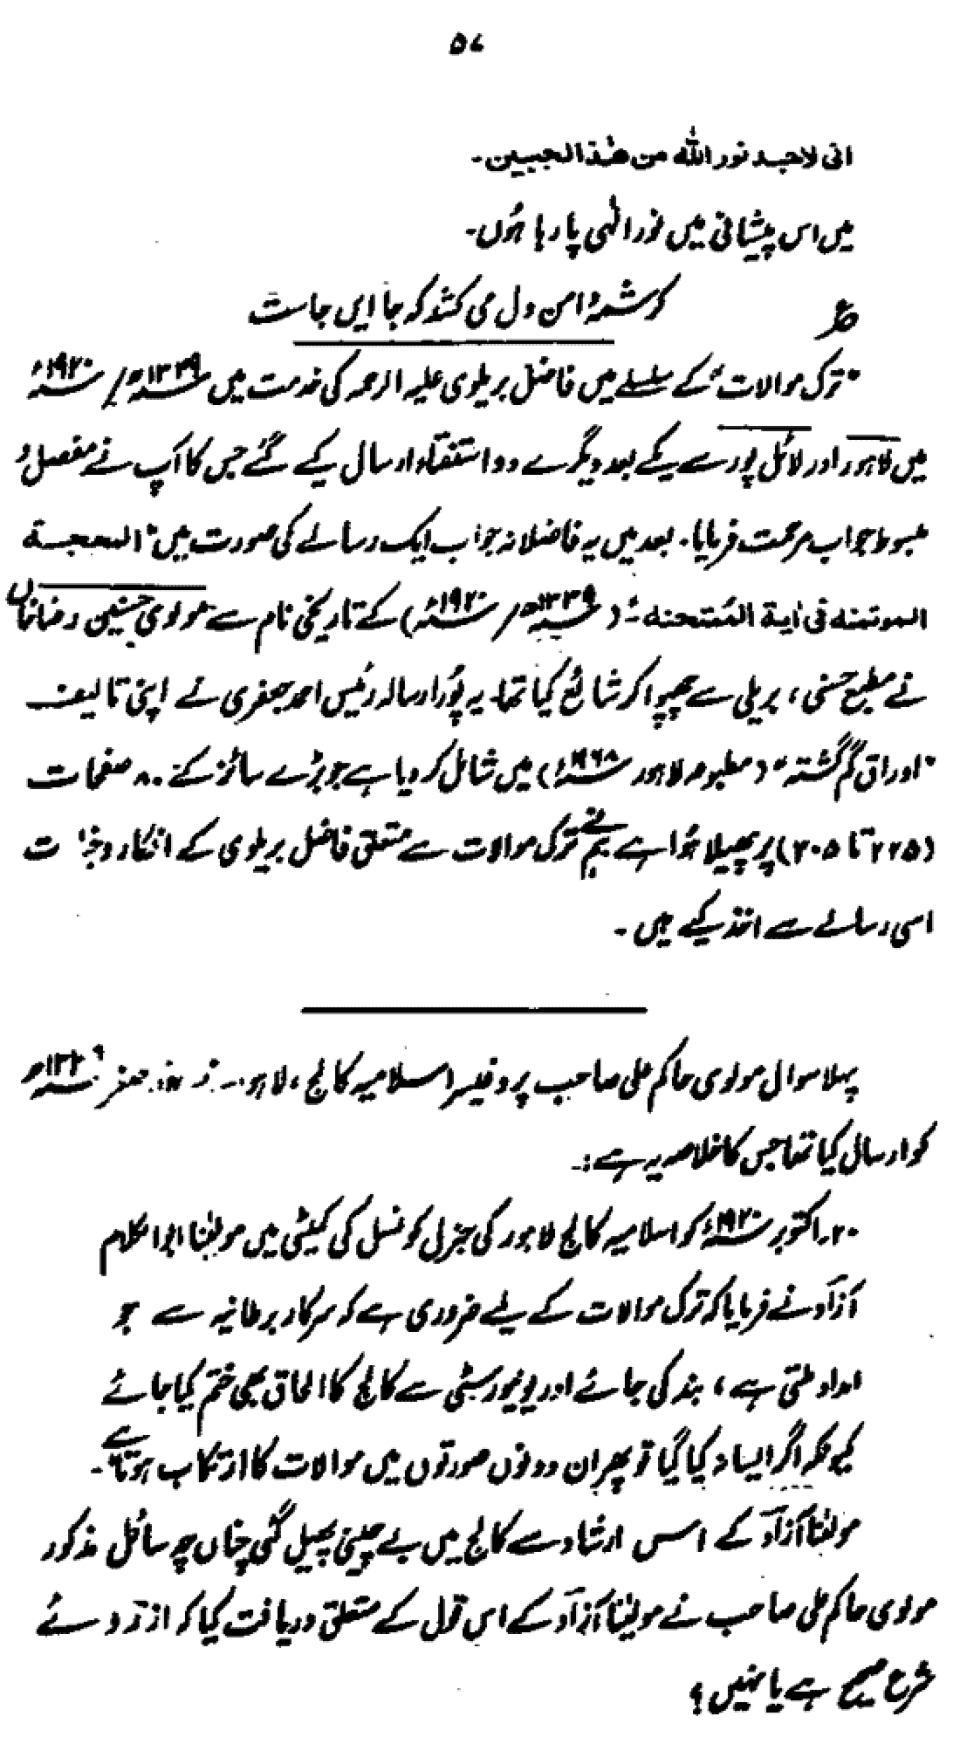 ۵۷
انی لاجد نور اللہ من ھٰذا الجبین۔
میں اس پیشانی میں نورِ الٰہی پا رہا ہُوں۔
ع کرشمۂ امن دل می کشد کہ جا ایں جاست
"ترک موالات" کے سلسلے میں فاضل بریلوی علیہ الرحمہ کی خدمت میں ۱۳۳۹ھ/ ۱۹۲۰ء
میں لاہور اور لائل پور سے یکے بعد دیگرے دو استفتاء ارسال کیے گئے جس کا آپ نے مفصل و
مبسوط جواب مرحمت فرمایا۔ بعد میں یہ فاضلانہ جواب ایک رسالے کی صورت میں "المحجۃ
الموتمنہ فی اٰیۃ الممتحنہ" (۱۳۳۹ھ/ ۱۹۲۰ء) کے تاریخی نام سے مولوی حسنین رضا خاں
نے مطبع حسنی، بریلی سے چھپوا کر شائع کیا تھا۔ یہ پُورا رسالہ رئیس احمد جعفری نے اپنی تالیف
"اوراقِ گم گشتہ" (مطبوعہ لاہور ۱۹۶۸ء) میں شامل کر دیا ہے جو بڑے سائز کے ۸۰ صفحات
(۲۲۵ تا ۳۰۵) پر پھیلا ہُوا ہے ہم نے ترک موالات سے متعلق فاضل بریلوی کے افکار و جذبات
اسی رسالے سے اخذ کیے ہیں۔
پہلا سوال مولوی حاکم علی صاحب پروفیسر اسلامیہ کالج، لاہور نے صفر ۱۳۳۹ھ
کو ارسال کیا تھا جس کا خلاصہ یہ ہے:۔
۲۰۔ اکتوبر ۱۹۲۰ء کو اسلامیہ کالج لاہور کی جنرل کونسل کی کمیٹی میں مولٰینا ابوالکلام
آزاد نے فرمایا کہ ترک موالات کے لیے ضروری ہے کہ سرکار برطانیہ سے جو
امداد ملتی ہے، بند کی جائے اور یونیورسٹی سے کالج کا الحاق بھی ختم کیا جائے
کیونکہ اگر ایسا نہ کیا گیا تو پھر ان دونوں صورتوں میں موالات کا ارتکاب ہوتا ہے۔
مولٰنا آزاد کے اس ارشاد سے کالج میں بے چینی پھیل گئی چناں چہ سائل مذکور
مولوی حاکم علی صاحب نے مولٰینا آزاد کے اس قول کے متعلق دریافت کیا کہ از رُوئے
شرع صحیح ہے یا نہیں؟